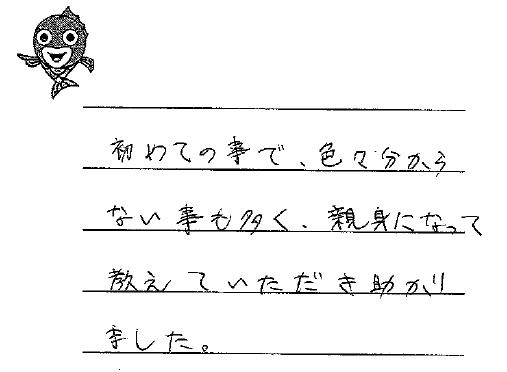 初めての事で、色々分から
ない事も多く、親身になって
教えていただき助かり
ました。